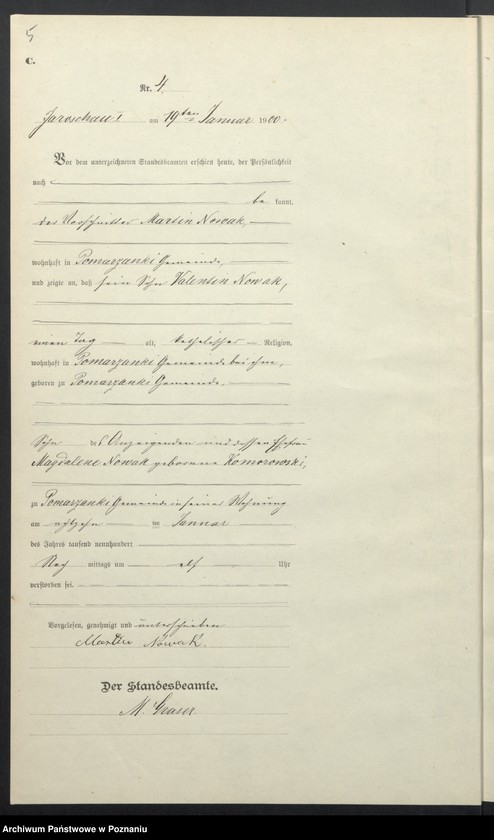 5
C.
Nr. 4.
Jaroschau I am 19ten Januar 1900.
Vor dem unterzeichneten Standesbeamten erschien heute, der Persönlichkeit
nach
be kannt,
der Vorschnitter Martin Nowak,
wohnhaft in Pomarzanki Gemeinde,
und zeigte an, daß sein Sohn Valentin Nowak,
einen Tag alt, katholischer Religion,
wohnhaft in Pomarzanki Gemeinde bei ihm,
geboren zu Pomarzanki Gemeinde,
Sohn des Anzeigenden und dessen Ehefrau
Magdalene Nowak geborene Komorowski,
zu Pomarzanki Gemeinde in seiner Wohnung
am achtzehn ten Januar
des Jahres tausend neunhundert
Nach mittags um elf Uhr
verstorben sei.
Vorgelesen, genehmigt und unterschrieben
Martin Nowak.
Der Standesbeamte.
M.
Archiwum Państwowe w Poznaniu